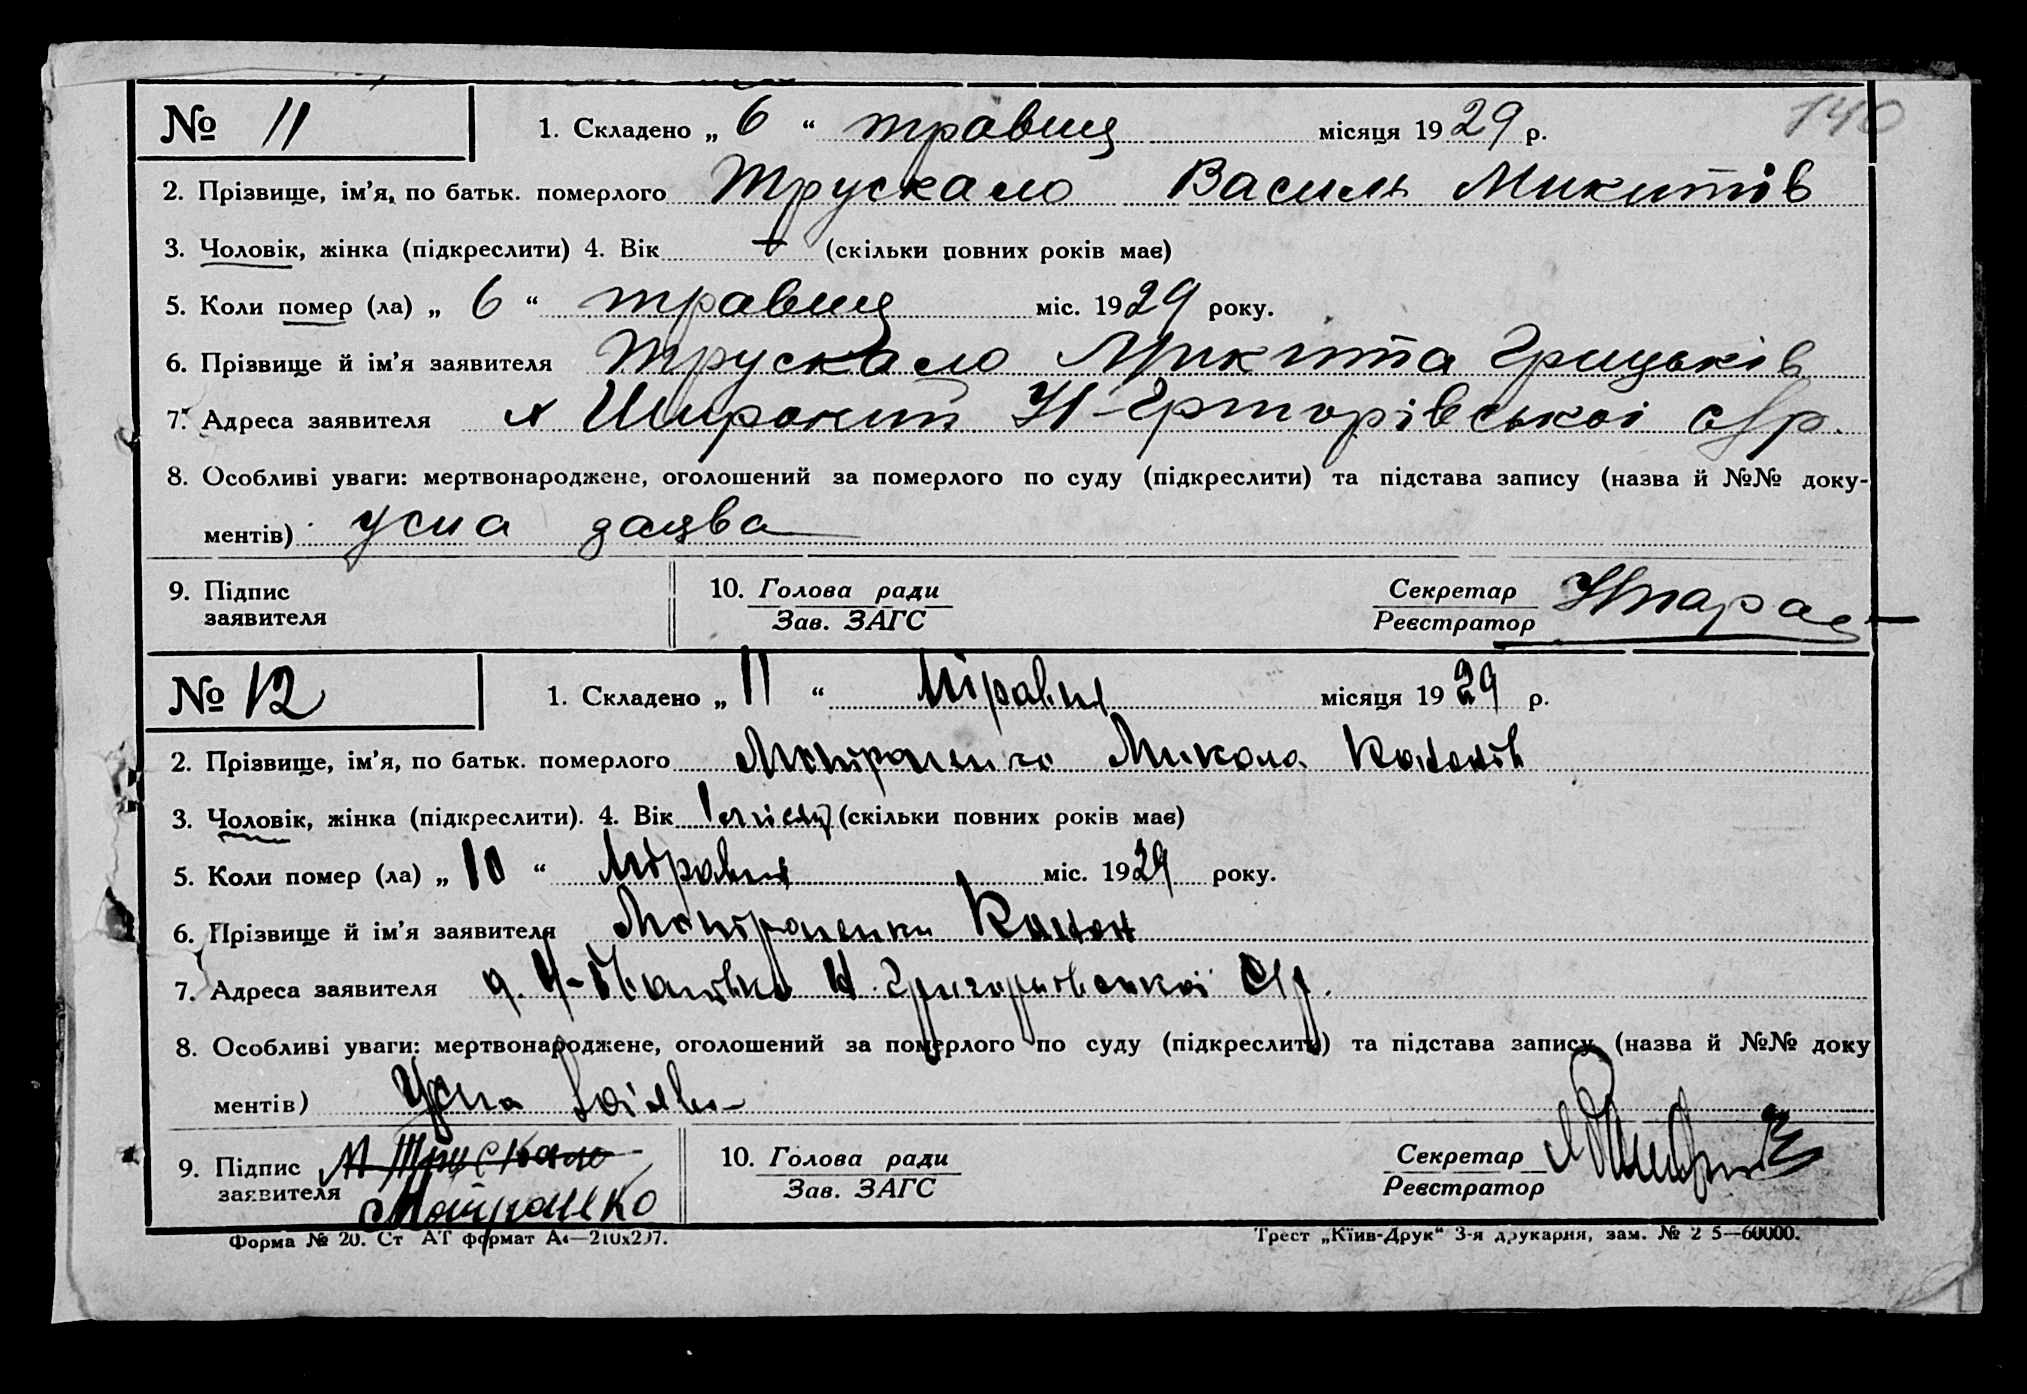 140
№ 11 1. Складено „ 6 “ травня місяця 1929 р.
2. Прізвище, ім'я, по батьк. померлого Трускало Василь Микитів
3. Чоловік, жінка (підкреслити) 4. Вік (скільки повних років має)
5. Коли помер (ла) „ 6 “ травня міс. 1929 року.
6. Прізвище й ім'я заявителя Трускало Микита Грицьків
7. Адреса заявителя х Широкий Н-Григорівської с/р.
8. Особливі уваги: мертвонароджене, оголошений за померлого по суду (підкреслити) та підстава запису (назва й №№ доку-
ментів) усна заява
9. Підпис заявителя 10. Голова ради Зав. ЗАГС Секретар Реєстратор
№ 12 1. Складено „ 11 “ Травня місяця 1929 р.
2. Прізвище, ім'я, по батьк. померлого Микола
3. Чоловік, жінка (підкреслити). 4. Вік 1 місяц (скільки повних років має)
5. Коли помер (ла) „ 10 “ Травня міс. 1929 року.
6. Прізвище й ім'я заявителя
7. Адреса заявителя Н. Григорівської С/р.
8. Особливі уваги: мертвонароджене, оголошений за померлого по суду (підкреслить) та підстава запису (назва й №№ доку
ментів) Усна заява
9. Підпис заявителя Трускало 10. Голова ради Зав. ЗАГС Секретар Реєстратор
Форма № 20. Ст АТ формат А4—210х297. Трест „Київ-Друк“ 3-я друкарня, зам. № 2 5—60000.